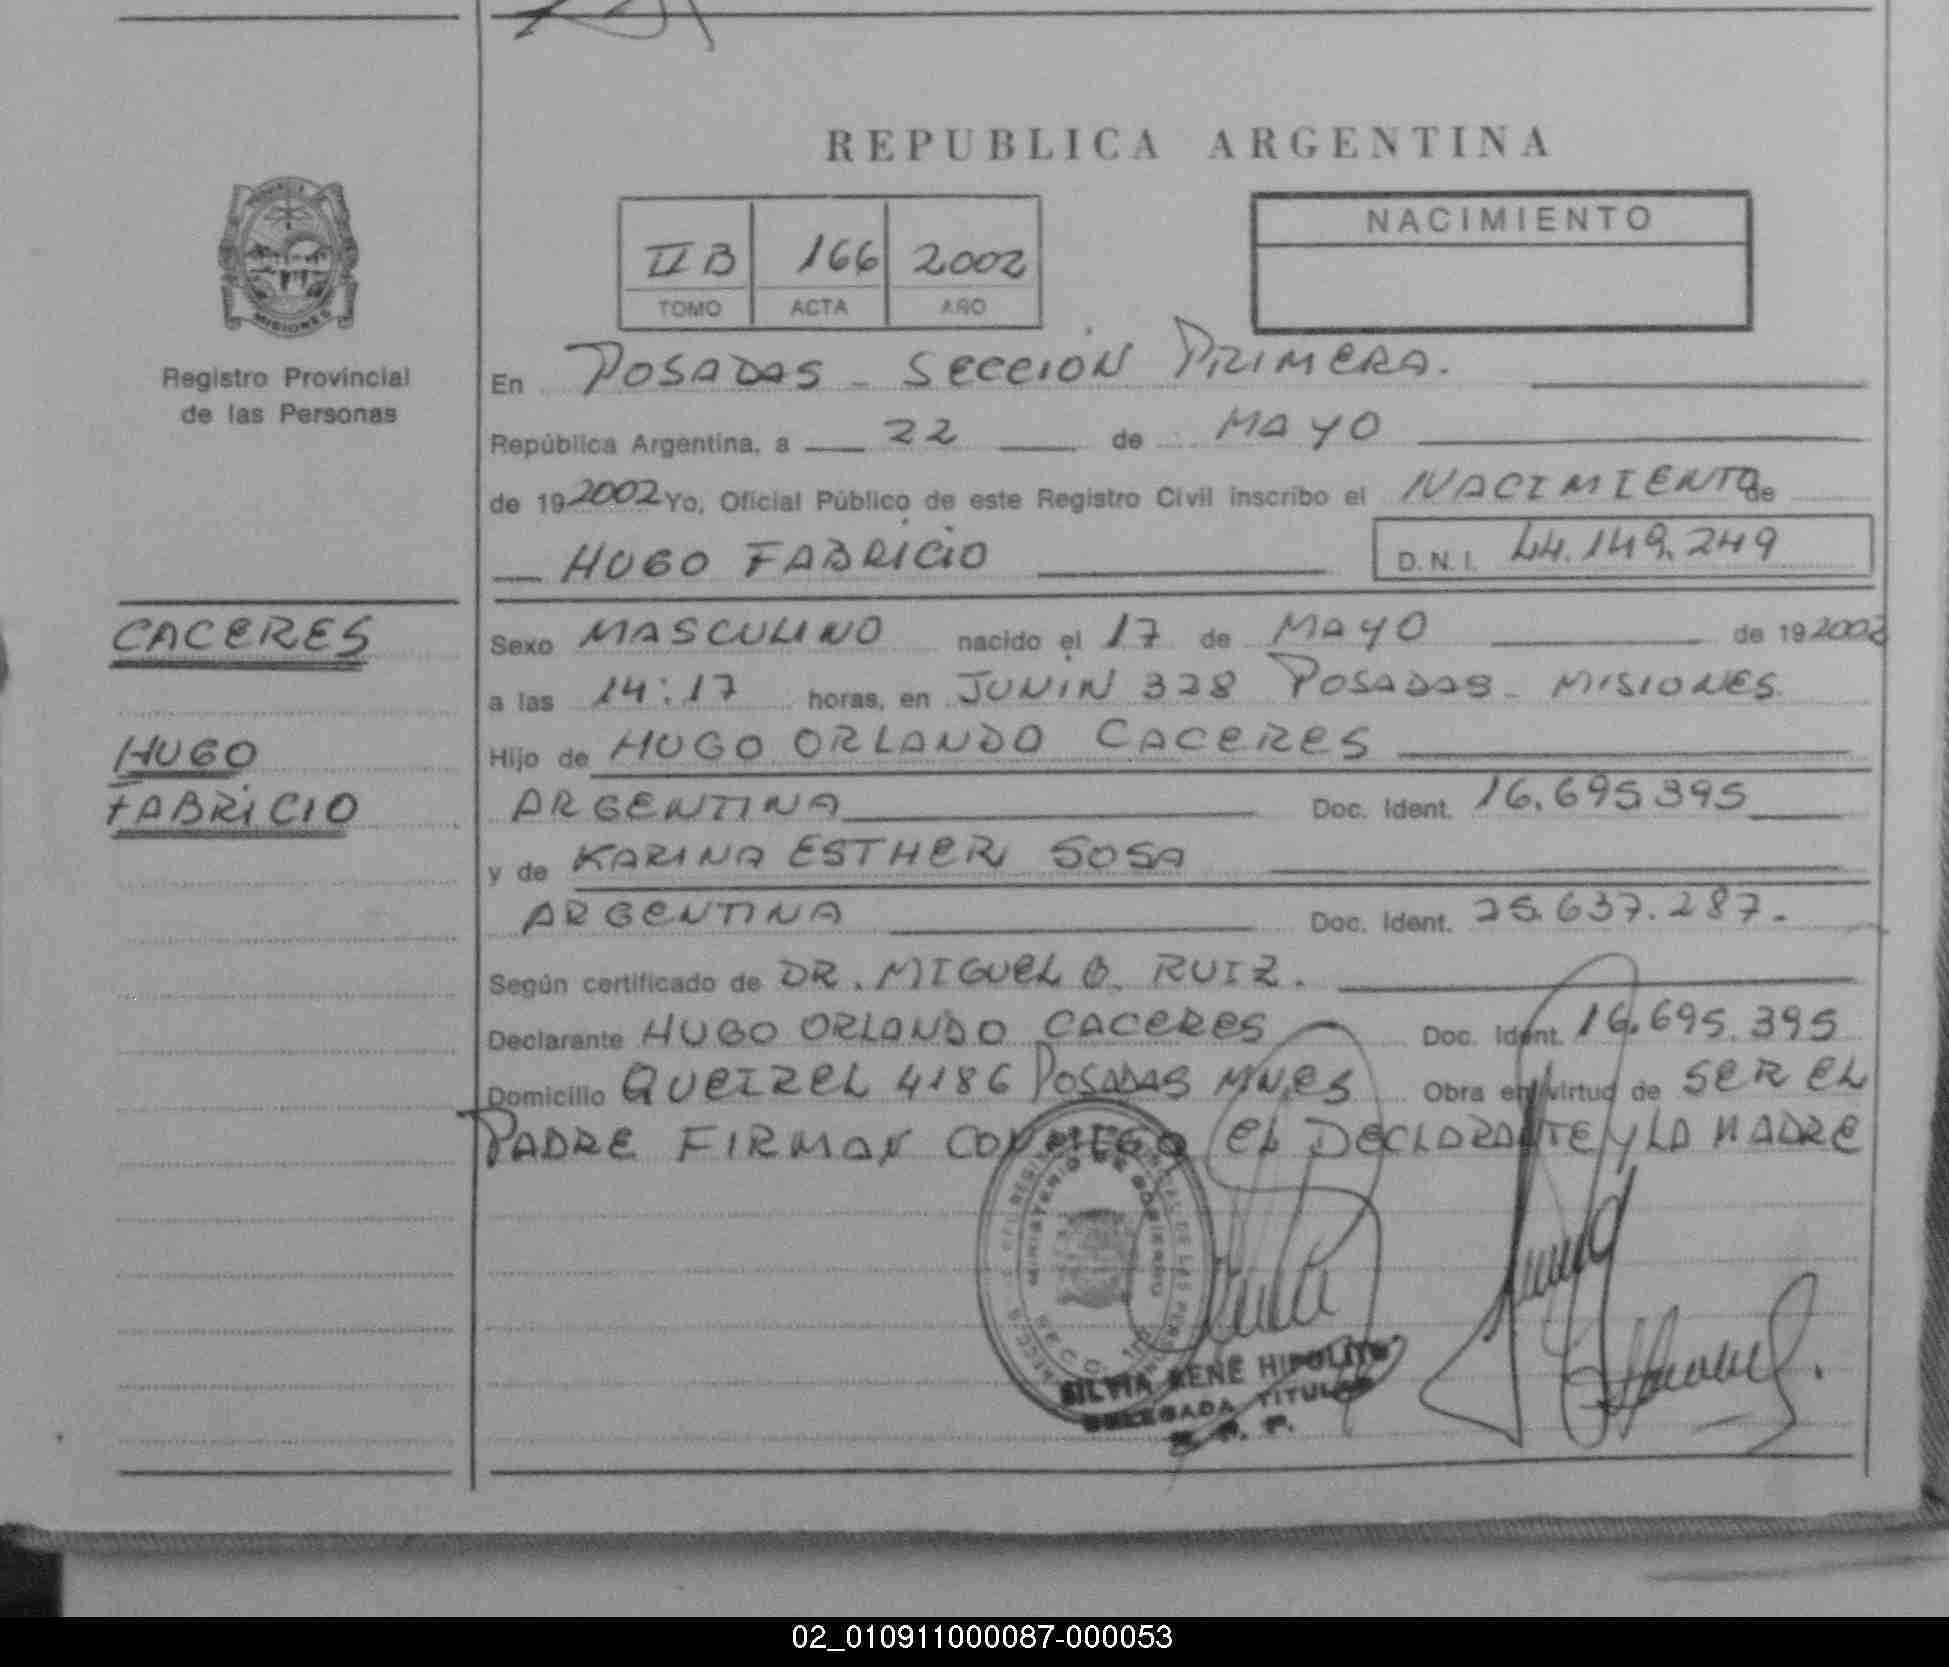 REPUBLICA ARGENTINA
MISIONES
Registro Provincial
de las Personas
II B 166 2002
TOMO ACTA AÑO
NACIMIENTO
En POSADAS - SECCION PRIMERA.
República Argentina, a 22 de MAYO
de 19 2002 Yo, Oficial Público de este Registro Civil inscribo el NACIMIENTO de
HUGO FABRICIO D.N.I. 44.149.249
CACERES
HUGO
FABRICIO
Sexo MASCULINO nacido el 17 de MAYO de 19 2002
a las 14:17 horas, en JUNIN 328 POSADAS - MISIONES
Hijo de HUGO ORLANDO CACERES
ARGENTINA Doc. Ident. 16.695.395
y de KARINA ESTHER SOSA
ARGENTINA Doc. Ident. 25.637.287.
Según certificado de DR. MIGUEL O. RUIZ.
Declarante HUGO ORLANDO CACERES Doc. Ident. 16.695.395
Domicilio QUEIREL 4186 POSADAS MNES Obra en virtud de SER EL
PADRE FIRMAN CONMIGO EL DECLARANTE Y LA MADRE
MINISTERIO DE GOBIERNO
SILVIA RENE HIPOLITO
DELEGADA TITULAR
R. P.
02_010911000087-000053